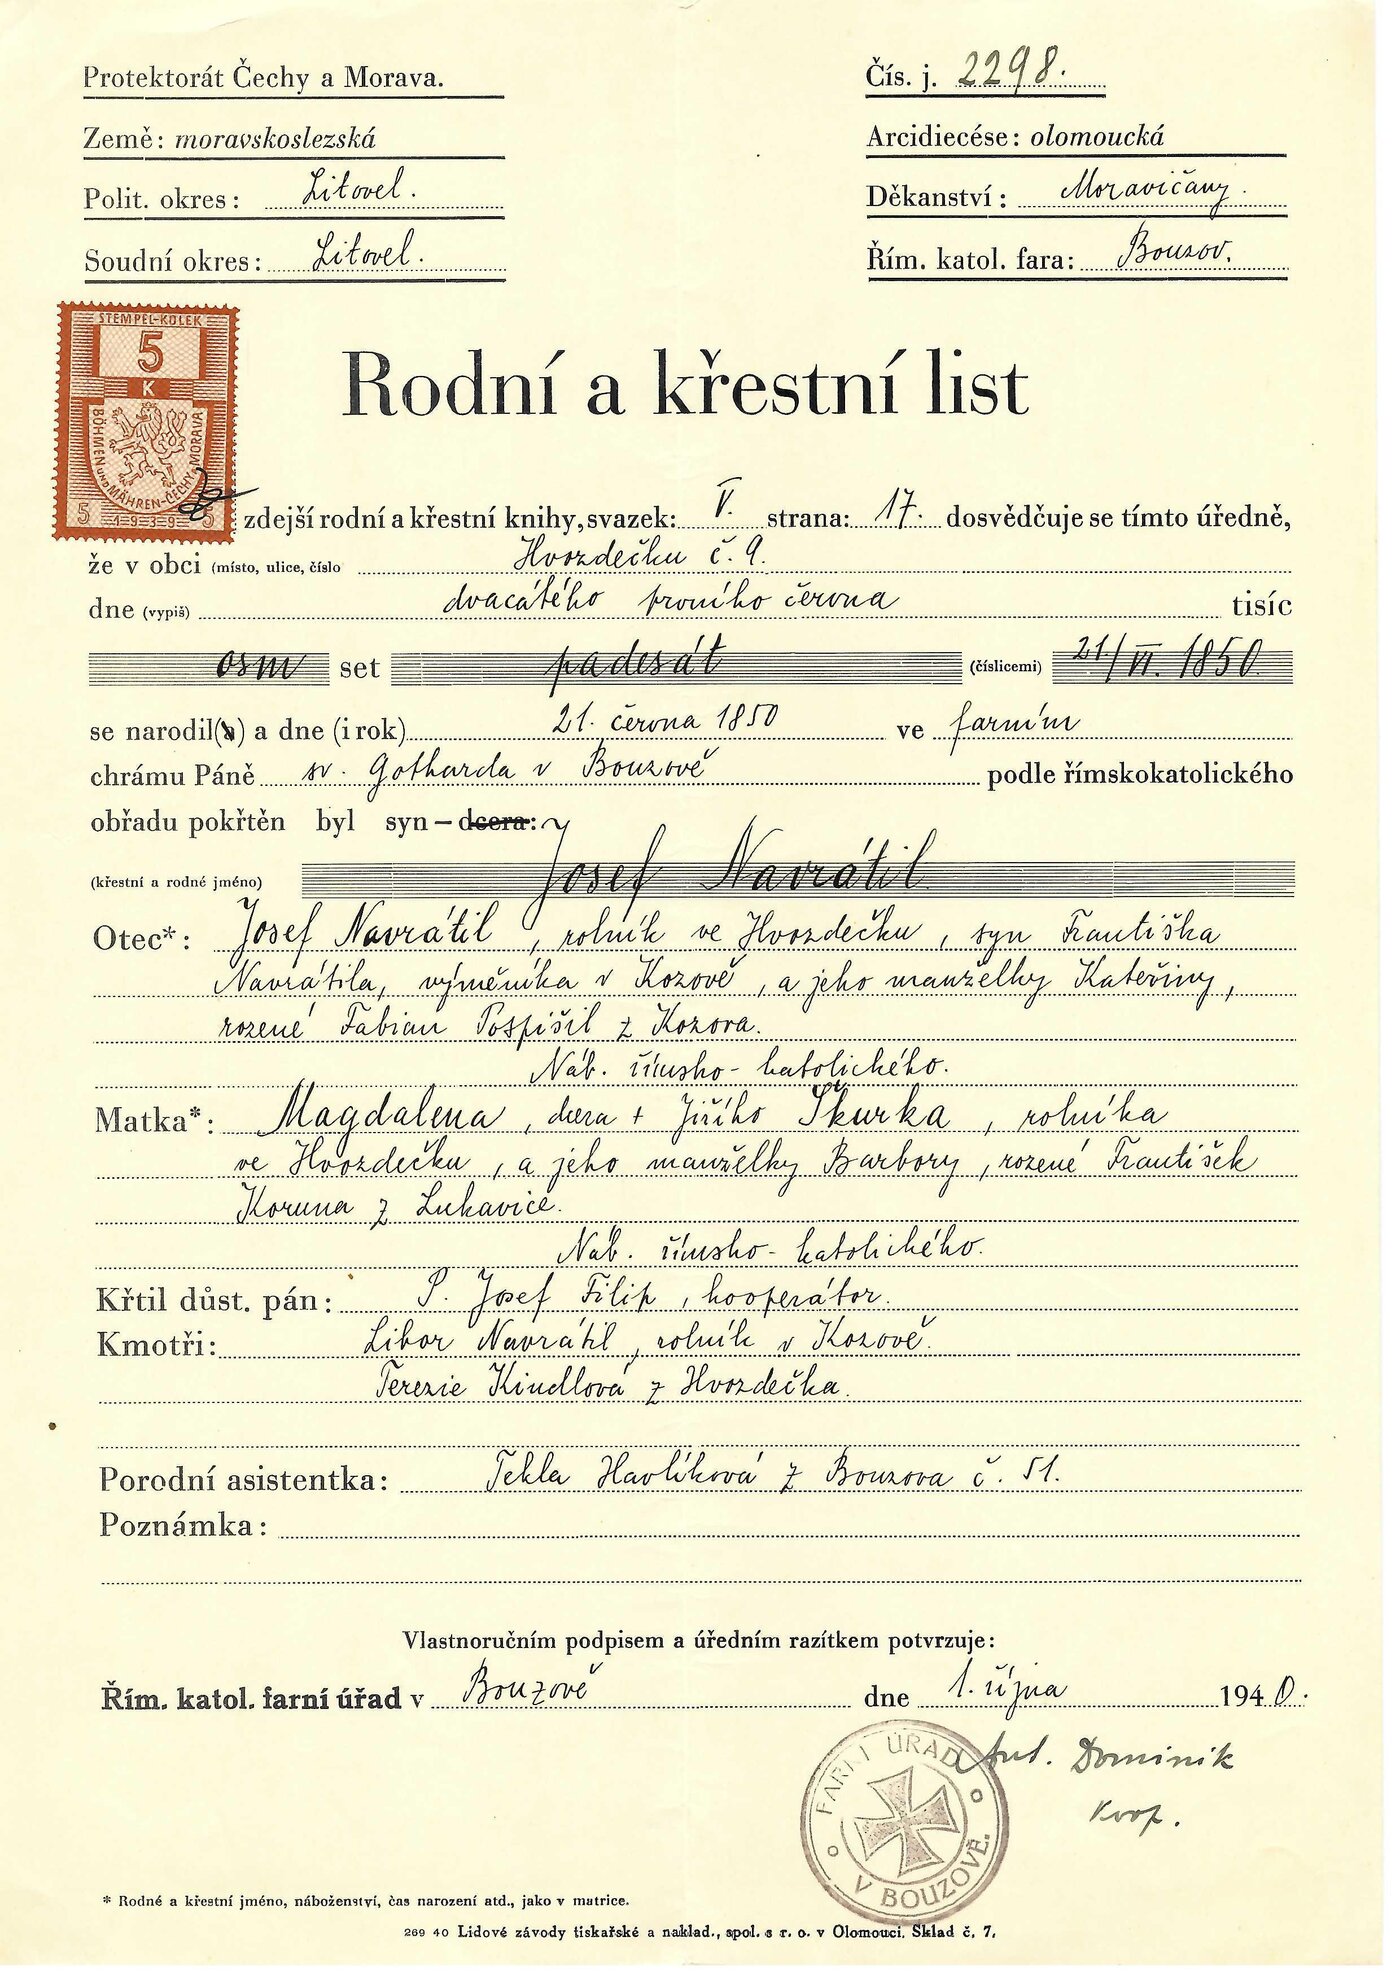 Protektorát Čechy a Morava.
Čís. j. 2298.
Země: moravskoslezská
Arcidiecése: olomoucká
Polit. okres: Litovel.
Děkanství: Moravičany.
Soudní okres: Litovel.
Řím. katol. fara: Bouzov.
STEMPEL-KOLEK
5
K
BÖHMEN UND MÄHREN-ČECHY A MORAVA
5 1939 5
Rodní a křestní list
Ze zdejší rodní a křestní knihy, svazek: V. strana: 17. dosvědčuje se tímto úředně,
že v obci (místo, ulice, číslo Hvozdečku č. 9.
dne (vypiš) dvacátého prvního června tisíc
osm set padesát (číslicemi) 21/VI. 1850
se narodil(a) a dne (i rok) 21. června 1850 ve farním
chrámu Páně sv. Gotharda v Bouzově podle římskokatolického
obřadu pokřtěn byl syn — dcera:
(křestní a rodné jméno) Josef Navrátil
Otec*: Josef Navrátil, rolník ve Hvozdečku, syn Františka
Navrátila, výměníka v Kozově, a jeho manželky Kateřiny,
rozené Fabian Pospíšil z Kozova.
Náb. římsko-katolického.
Matka*: Magdalena, dcera + Jiřího Škurka, rolníka
ve Hvozdečku, a jeho manželky Barbory, rozené František
Koruna z Lukavice.
Náb. římsko-katolického.
Křtil důst. pán: P. Josef Filip, kooperátor.
Kmotři: Libor Navrátil, rolník v Kozově.
Terezie Kindlová z Hvozdečka.
Porodní asistentka: Tekla Havlíková z Bouzova č. 51.
Poznámka:
Vlastnoručním podpisem a úředním razítkem potvrzuje:
Řím. katol. farní úřad v Bouzově dne 1. října 1940.
FARNÍ ÚŘAD
V BOUZOVĚ.
Ant. Dominik
koop.
* Rodné a křestní jméno, náboženství, čas narození atd., jako v matrice.
269 40 Lidové závody tiskařské a naklad., spol. s r. o. v Olomouci. Sklad č. 7.